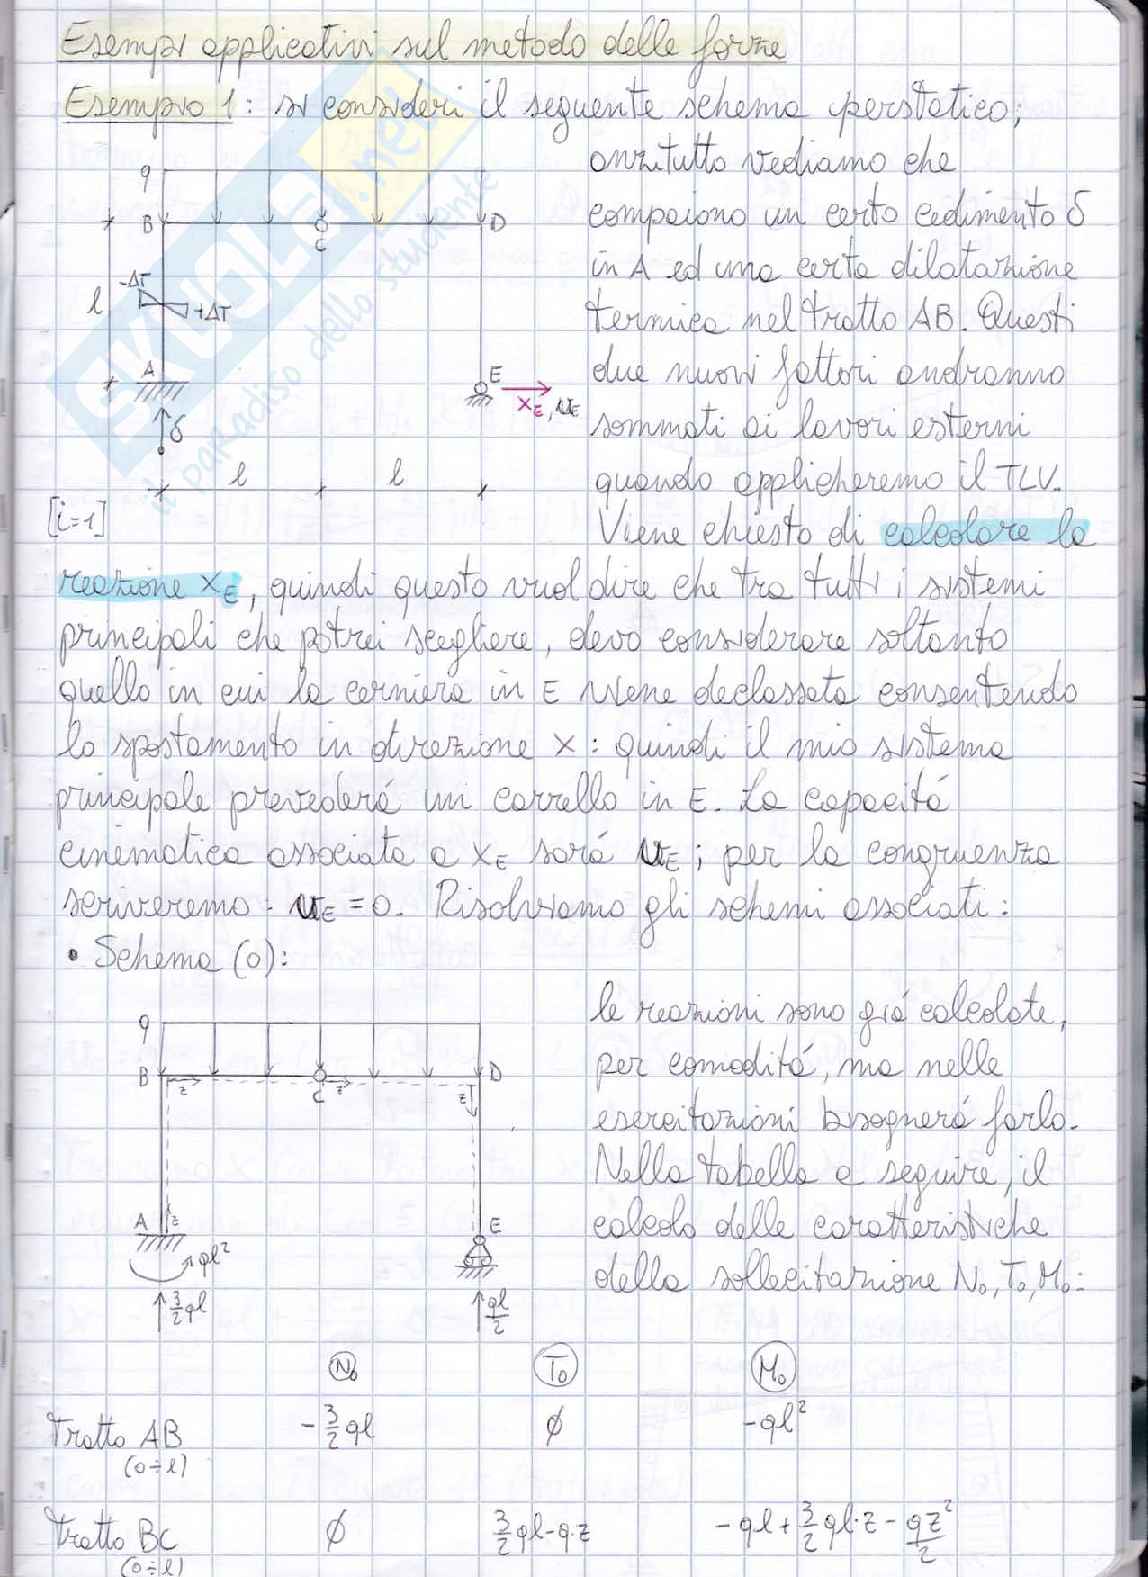 Esempi applicativi sul metodo delle forze
Esempio 1: si consideri il seguente schema iperstatico;
anzitutto vediamo che
compaiono un certo cedimento δ
in A ed una certa dilatazione
termica nel tratto AB. Questi
due nuovi fattori andranno
sommati ai lavori esterni
quando applicheremo il TLV.
Viene chiesto di calcolare la
q
B
D
C
-ΔT
+ΔT
l
A
E
X_E, u_E
δ
l
l
[i=1]
reazione X_E, quindi questo vuol dire che tra tutti i sistemi
principali che potrei scegliere, devo considerare soltanto
quello in cui la cerniera in E viene declassata consentendo
lo spostamento in direzione x: quindi il mio sistema
principale prevederá un carrello in E. La capacitá
cinematica associata a X_E sará u_E; per la congruenza
scriveremo: u_E = 0. Risolviamo gli schemi associati:
• Schema (0):
le reazioni sono giá calcolate,
per comoditá, ma nelle
esercitazioni bisognerá farlo.
Nella tabella a seguire, il
calcolo delle caratteristiche
della sollecitazione N₀, T₀, M₀:
q
B
z
C
z
D
z
A
z
E
ql²
3/2 ql
ql/2
N₀ T₀ M₀
Tratto AB -3/2 ql ∅ -ql²
(0÷l)
Tratto BC ∅ 3/2 ql-q·z -ql+3/2 ql·z - qz²/2
(0÷l)
SKUOLA.net
il paradiso dello studente